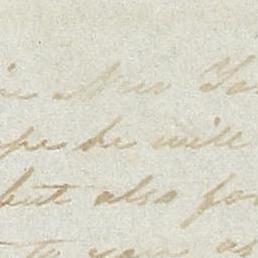 Mrs
he will
but also for
to you as